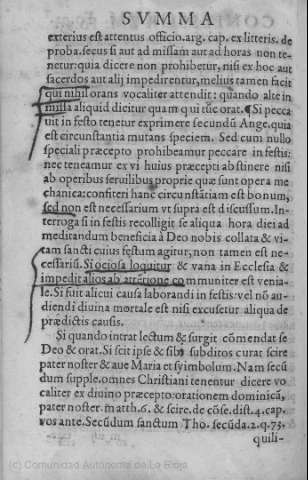 SVMMA
exterius est attentus officio.arg. cap. ex litteris. de
proba. secus si aut ad missam aut ad horas non te-
netur: quia dicere non prohibetur, nisi ex hoc aut
sacerdos aut alij impedirentur, melius tamen facit
qui nihil orans vocaliter attendit: quãdo alte in
missa aliquid dicitur quam qui tũc orat. ¶ Si pecca
uit in festo tenetur exprimere secundũ Ange. quia
est circunstantia mutans speciem. Sed cum nullo
speciali præcepto prohibeamur peccare in festis:
nec teneamur ex vi huius præcepti abstinere nisi
ab operibus seruilibus proprie quæ sunt opera me
chanica: confiteri hanc circunstãtiam est bonum,
sed non est necessarium vt supra est discussum. In-
terroga si in festis recolligit se aliqua hora diei ad
meditandum beneficia à Deo nobis collata & vi-
tam sancti cuius festum agitur, non tamen est ne-
cessariũ. Si ociosa loquitur & vana in Ecclesia &
impedit alios ab attẽtione communiter est venia-
le. Si fuit alicui causa laborandi in festis: vel nõ au-
diendi diuina mortale est nisi excusetur aliqua de
prædictis causis.
Si quando intrat lectum & surgit cõmendat se
Deo & orat. Si scit ipse & sibi subditos curat scire
pater noster & aue Maria et symbolum. Nam secũ
dum supple. omnes Christiani tenentur dicere vo
caliter ex diuino præcepto: orationem dominicã,
pater noster. matth. 6. & scire. de cõse. dist. 4. cap.
vos ante. Secũdum sanctum Tho. secũda. 2. q. 73,
quili-
(c) Comunidad Autónoma de La Rioja